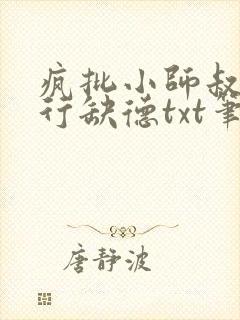 疯批小师叔
行缺德txt笔
唐静波